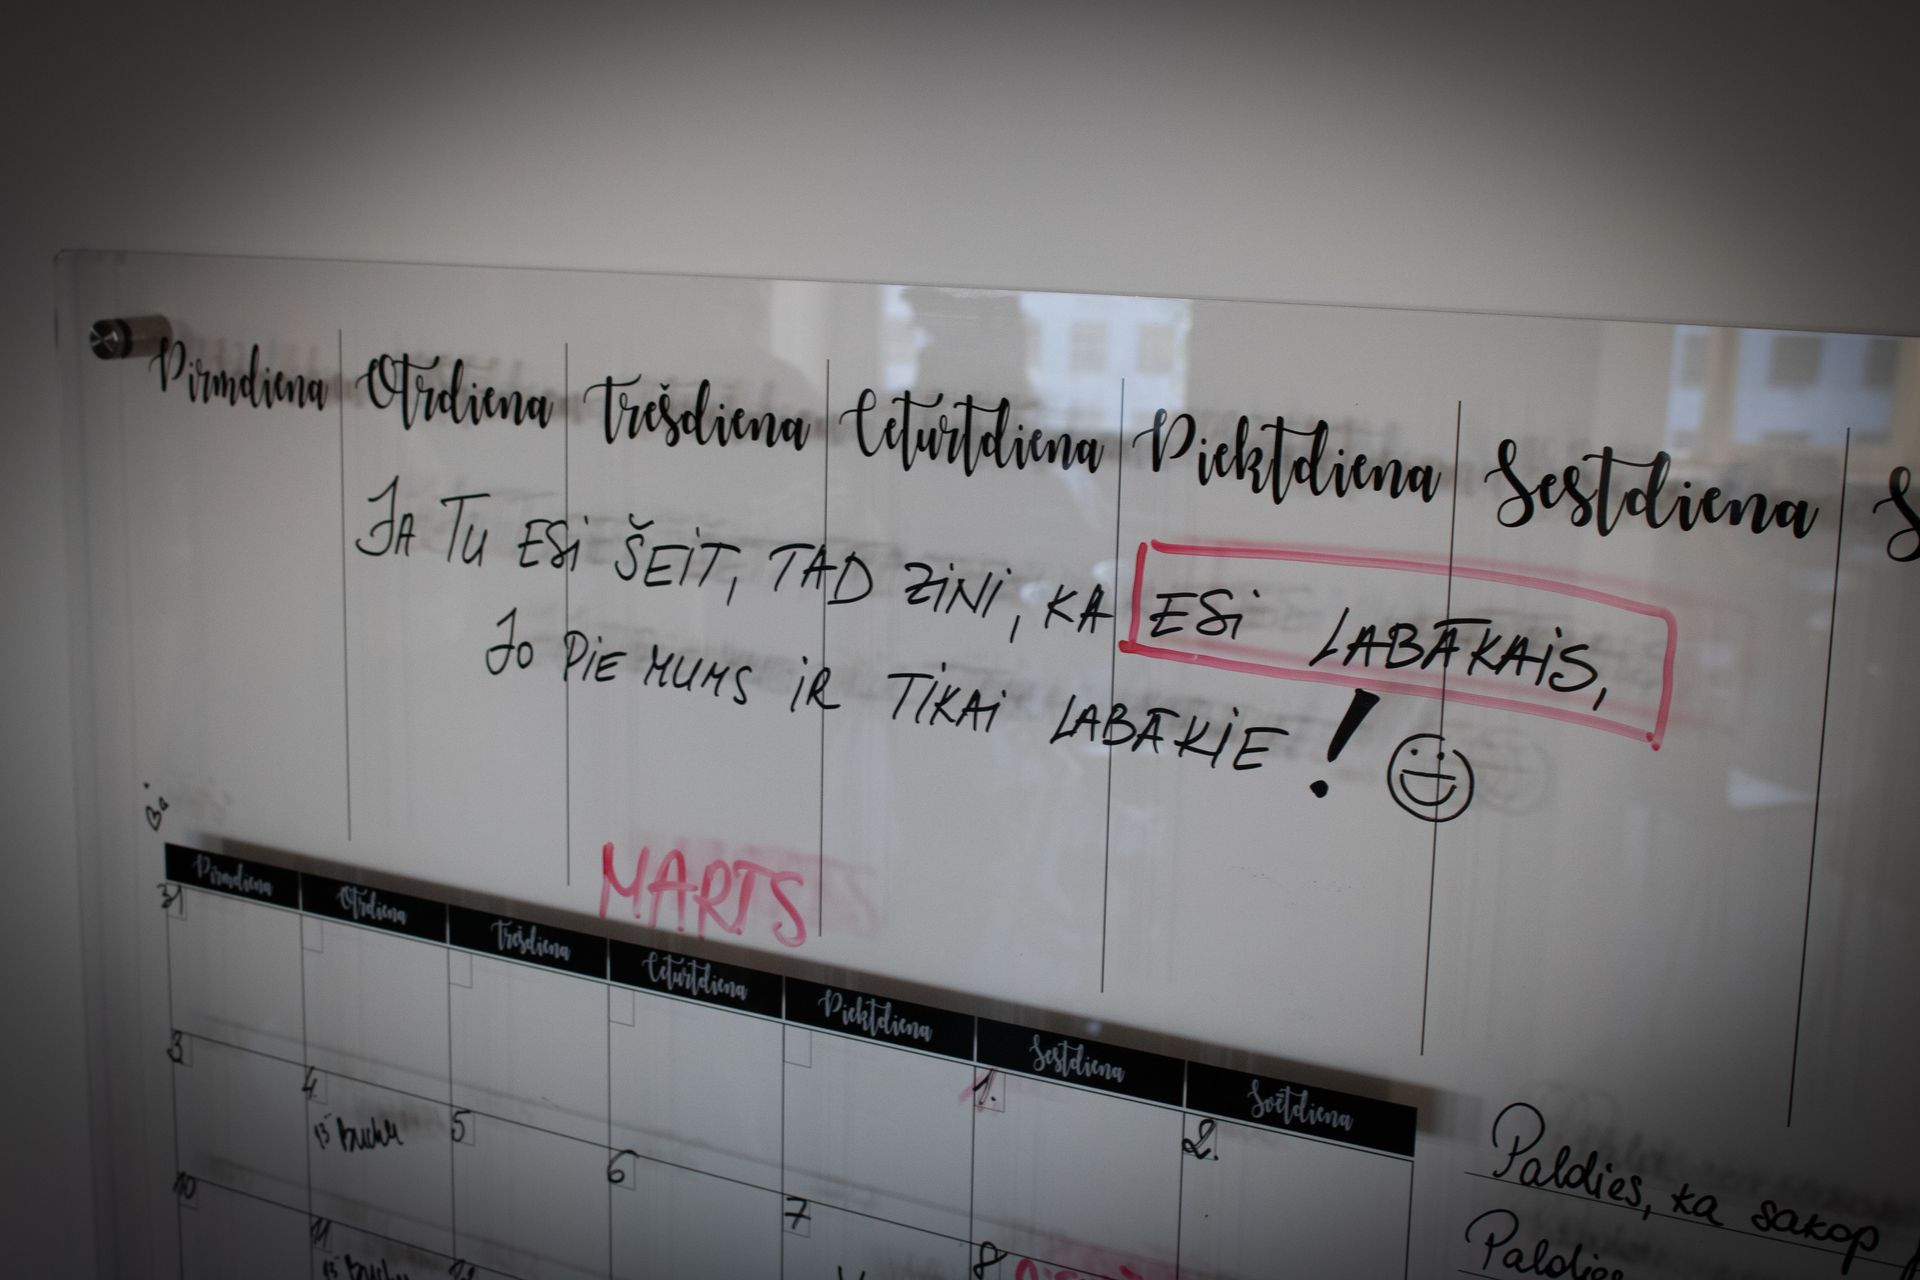 Pirmdiena Otrdiena Trešdiena Ceturtdiena Piektdiena Sestdiena S
JA TU ESI ŠEIT, TAD ZINI, KA ESI LABĀKAIS,
JO PIE MUMS IR TIKAI LABĀKIE! 
MARTS
Pirmdiena Otrdiena Trešdiena Ceturtdiena Piektdiena Sestdiena Svētdiena
31 1. 2.
3 4. 5 6 7 8
10 11
Paldies, ka sakop
Paldies